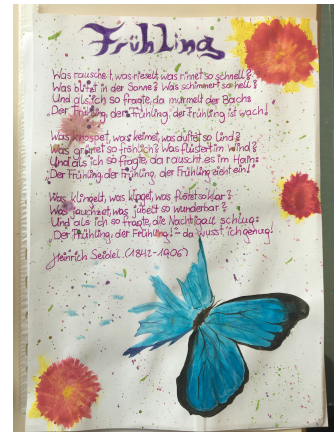 Frühling
Was rauschet, was rieselt, was rinnet so schnell?
Was blitzt in der Sonne? Was schimmert so hell?
Und als ich so fragte, da murmelt der Bach:
"Der Frühling, der Frühling, der Frühling ist wach!"
Was knospet, was keimet, was duftet so lind?
Was grünet so fröhlich? Was flüstert im Wind?
Und als ich so fragte, da rauscht es im Hain:
"Der Frühling, der Frühling, der Frühling zieht ein!"
Was klingelt, was klaget, was flötet so klar?
Was jauchzet, was jubelt so wunderbar?
Und als ich so fragte, die Nachtigall schlug:
"Der Frühling, der Frühling!" – da wusst' ich genug!
Heinrich Seidel (1842-1906)